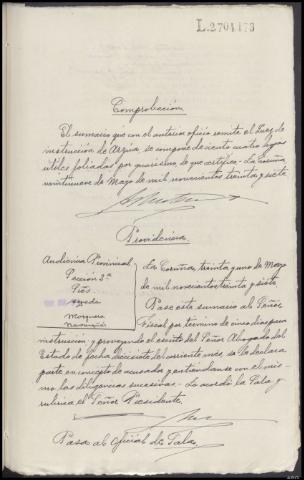 L.2704173
Comprobación
El sumario que con el anterior oficio remite el Juez de
instrucción de Arzúa se compone de ciento cuatro hojas
útiles foliadas por guarismo, de que certifico = La Coruña
veintinueve de Mayo de mil novecientos treinta y siete.
Providencia
Audiencia Provincial
Sección 2ª
La Coruña, treinta y uno de Mayo
de mil novecientos treinta y siete
Pase este sumario al Señor
Fiscal por término de cinco días para
instrucción y proveyendo el escrito del Señor Abogado del
Estado de fecha diecisiete del corriente mes, se le declara
parte en concepto de acusador y entiéndanse con el mismo
las diligencias sucesivas = Lo acordó la Sala y
rubrica el Señor Presidente.
Pasa al Oficial de Sala